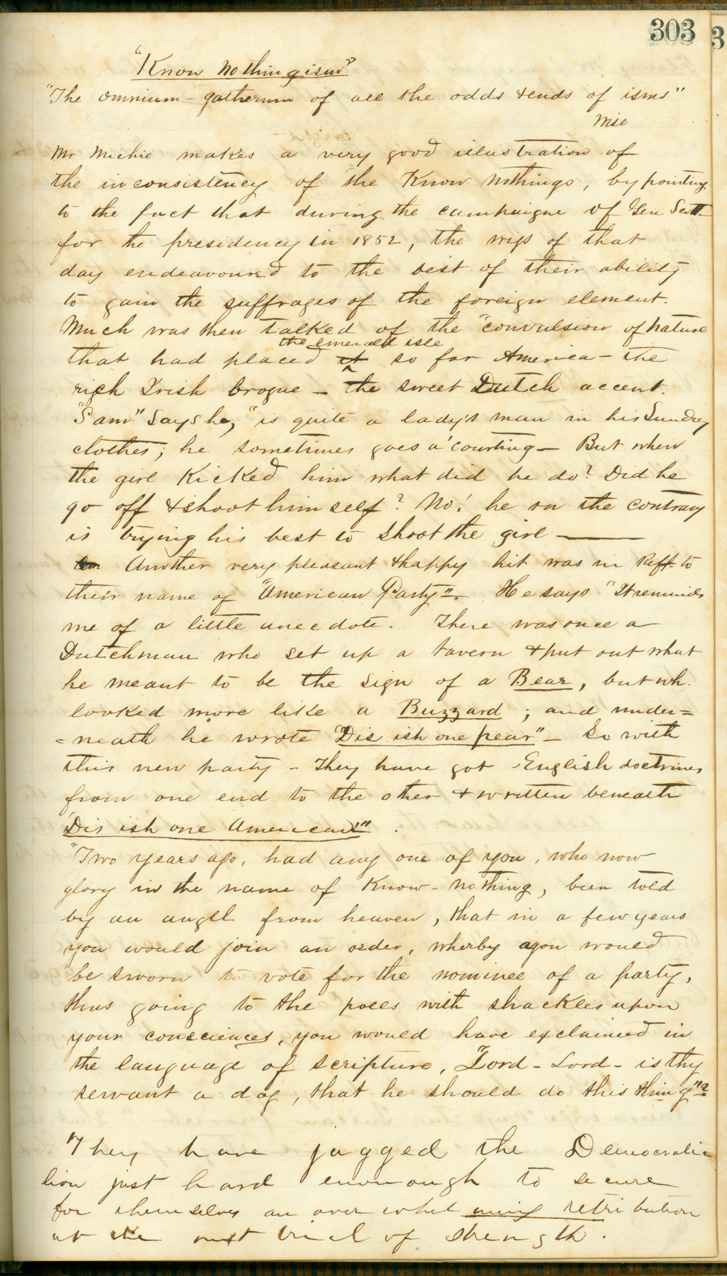 303
"Know nothingism"
"The omnium-gatherum of all the odds & ends of isms"
Wise
Mr Michie makes a very good illustration of
the inconsistency of the Know nothings, by pointing
to the fact that during the campaigne of Gen. Scott
for the presidency in 1852, the wigs of that
day endeavoured to the best of their ability
to gain the suffrages of the foreign element.
Much was then talked of the "convulsion of nature
the emerald isle
that had placed it so far America - the
rich Irish brogue - the sweet Dutch accent.
"Sam" Says he, "is quite a lady's man in his Sunday
clothes; he sometimes goes a'courting - But when
the girl Kicked him what did he do? Did he
go off & shoot himself? No! he on the contrary
is trying his best to shoot the girl —
Another very pleasant & happy hit was in Reff. to
their name of "American Party" - He says "It reminds
me of a little anecdote. There was once a
Dutchman who set up a tavern & put out what
he meant to be the sign of a Bear, but wh.
looked more like a Buzzard; and under=
=neath he wrote "Dis ish one pear" - So with
this new party - They have got English doctrines
from one end to the other & written beneath
Dis ish one American"".
"Two years ago, had any one of you, who now
glory in the name of Know-nothing, been told
by an angel from heaven, that in a few years
you would join an order, wherby you would
be sworn to vote for the nominee of a party,
thus going to the poles with shackles upon
your consciences, you would have exclaimed in
the language of scripture, "Lord - Lord - is thy
servant a dog, that he should do this thing"?
"They have jagged the Democratic
lion just hard enough to secure
for themselves an over whelming retribution
at the next trial of strength.